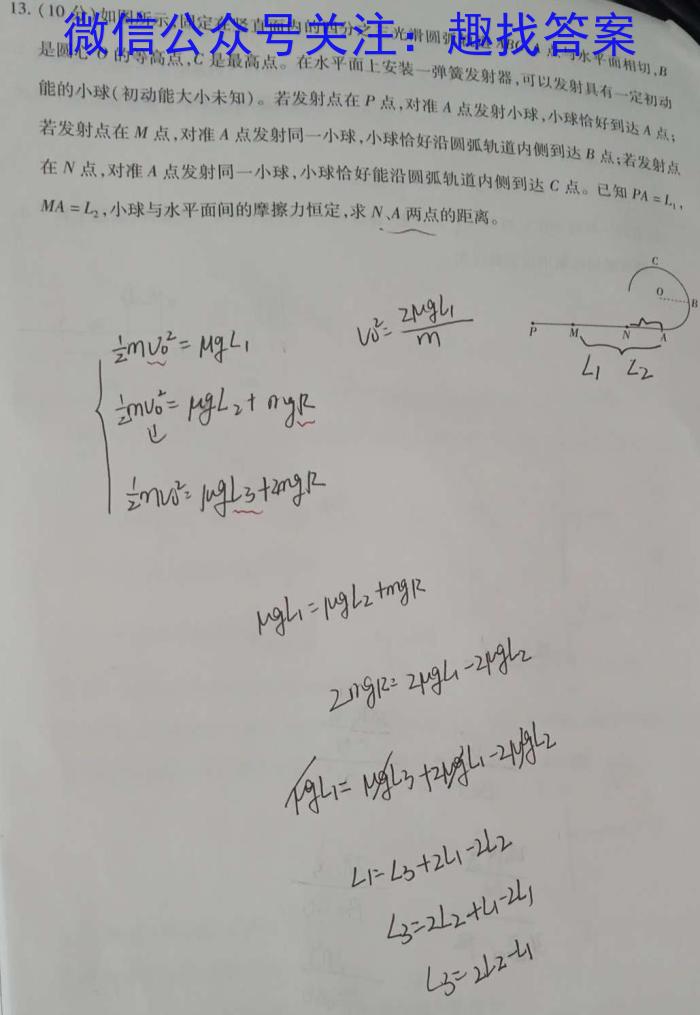 13.(10分)如图所示,固定在竖直面内的四分之三光滑圆弧 A点与水平面相切,B
微信公众号关注：趣找答案
是圆心O的等高点,C是最高点。在水平面上安装一弹簧发射器,可以发射具有一定初动
能的小球(初动能大小未知)。若发射点在P点,对准A点发射小球,小球恰好到达A点;
若发射点在M点,对准A点发射同一小球,小球恰好沿圆弧轨道内侧到达B点;若发射点
在N点,对准A点发射同一小球,小球恰好能沿圆弧轨道内侧到达C点。已知PA=L₁,
MA=L₂,小球与水平面间的摩擦力恒定,求N、A两点的距离。
C
O
B
P M N A
L₁ L₂
½mv₀²=μgL₁
v₀²=2μgL₁/m
½mv₀²=μgL₂+mgR
½mv₀²=μgL₃+2mgR
μgL₁=μgL₂+mgR
2mgR=2μgL₁-2μgL₂
μgL₁=μgL₃+2μgL₁-2μgL₂
L₁=L₃+2L₁-2L₂
L₃=2L₂+L₁-2L₁
L₃=2L₂-L₁